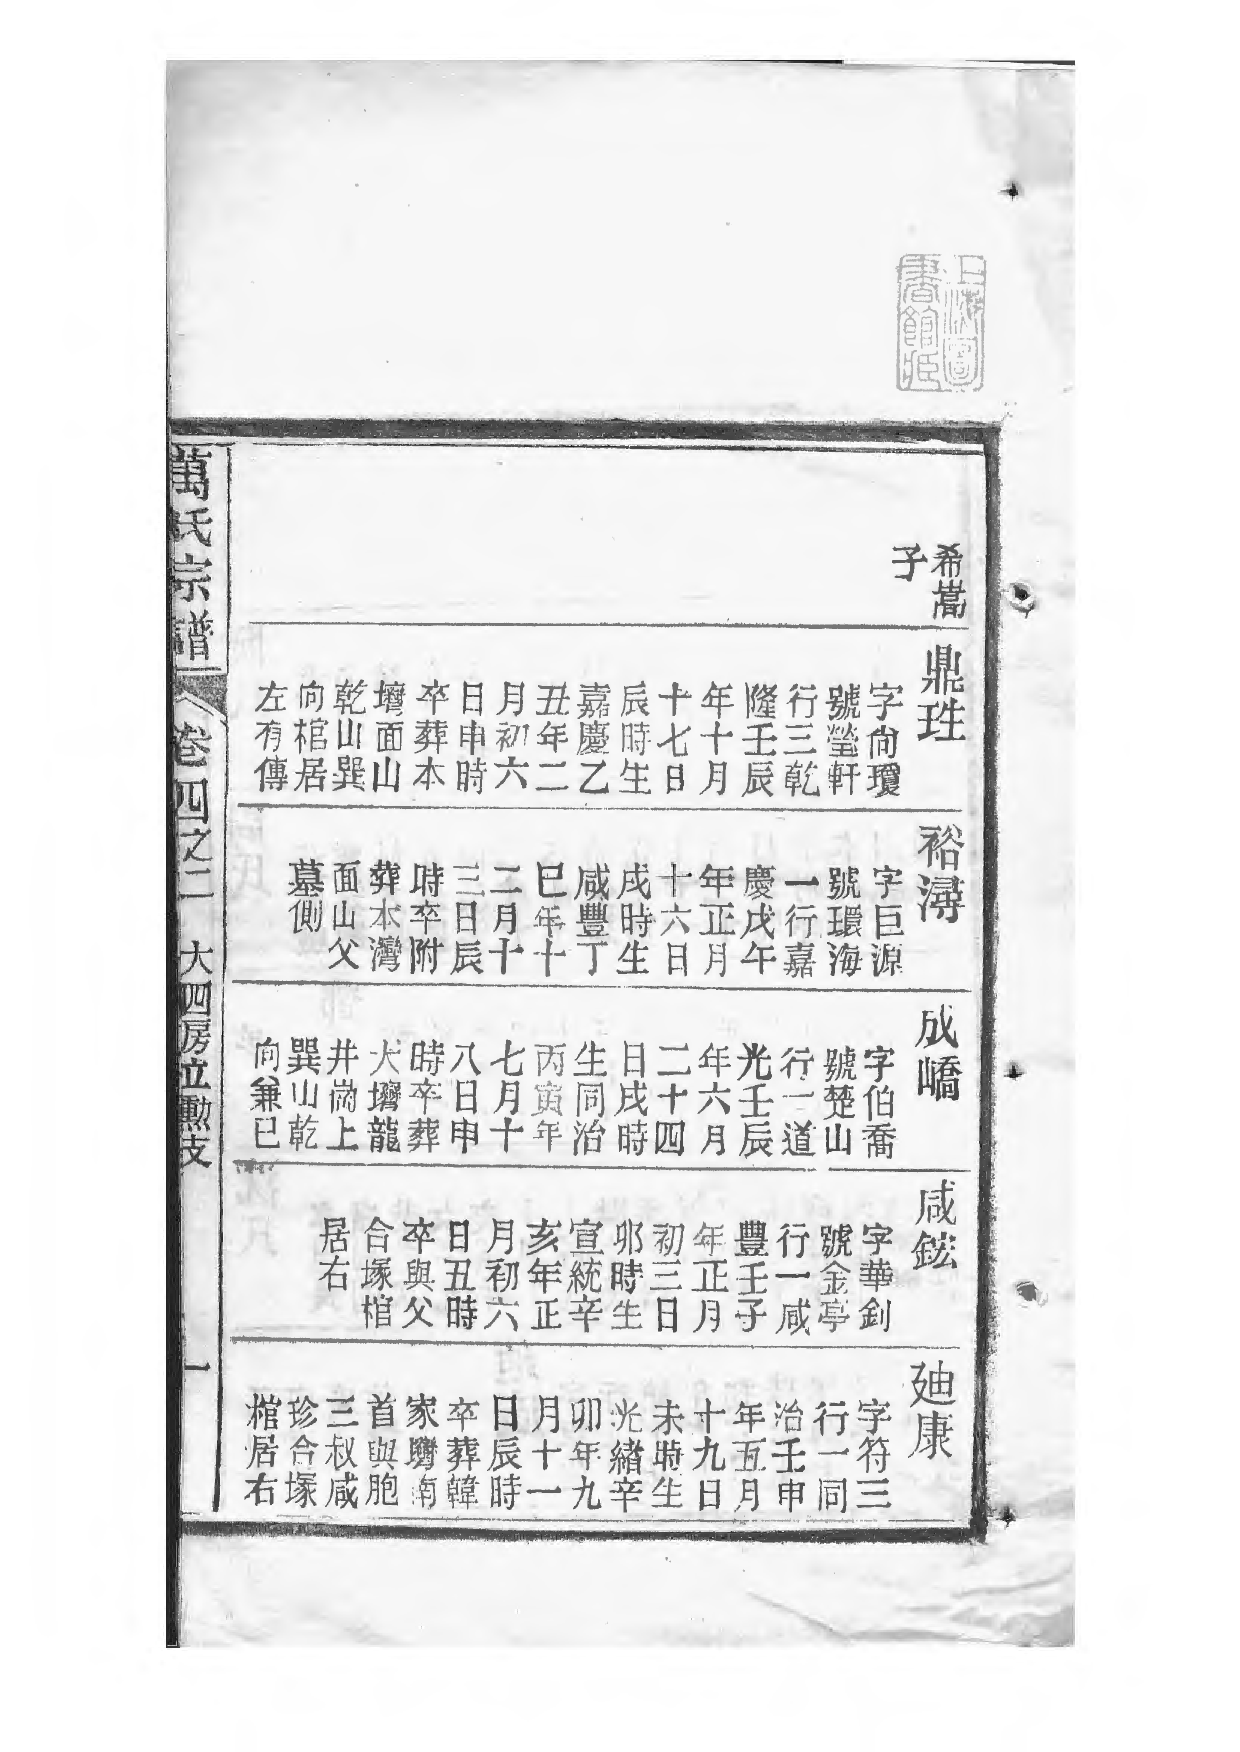 上海圖
書館藏
希嵩
子
鼎珄
字尙瓊
號瑩軒
行三乾
隆壬辰
年十月
十七日
辰時生
嘉慶乙
丑年二
月初六
日申時
卒葬本
壪面山
乾山巽
向棺居
左有傳
裕潯
字巨源
號環海
一行嘉
慶戊午
年正月
十六日
戌時生
咸豐丁
巳年十
二月十
三日辰
時卒附
葬本灣
面山父
墓側
成嶠
字伯喬
號楚山
行一道
光壬辰
年六月
二十四
日戌時
生同治
丙寅年
七月十
八日申
時卒葬
犬壪龍
井崗上
巽山乾
向兼巳
咸鋐
字華釗
號金亭
行一咸
豐壬子
年正月
初三日
卯時生
宣統辛
亥年正
月初六
日丑時
卒與父
合塚棺
居右
廸康
字符三
行一同
治壬申
年五月
十九日
未時生
光緒辛
卯年九
月十一
日辰時
卒葬韓
家壪南
首與胞
三叔咸
珍合塚
棺居右
萬氏宗譜
卷四之二 大四房立勳支 一